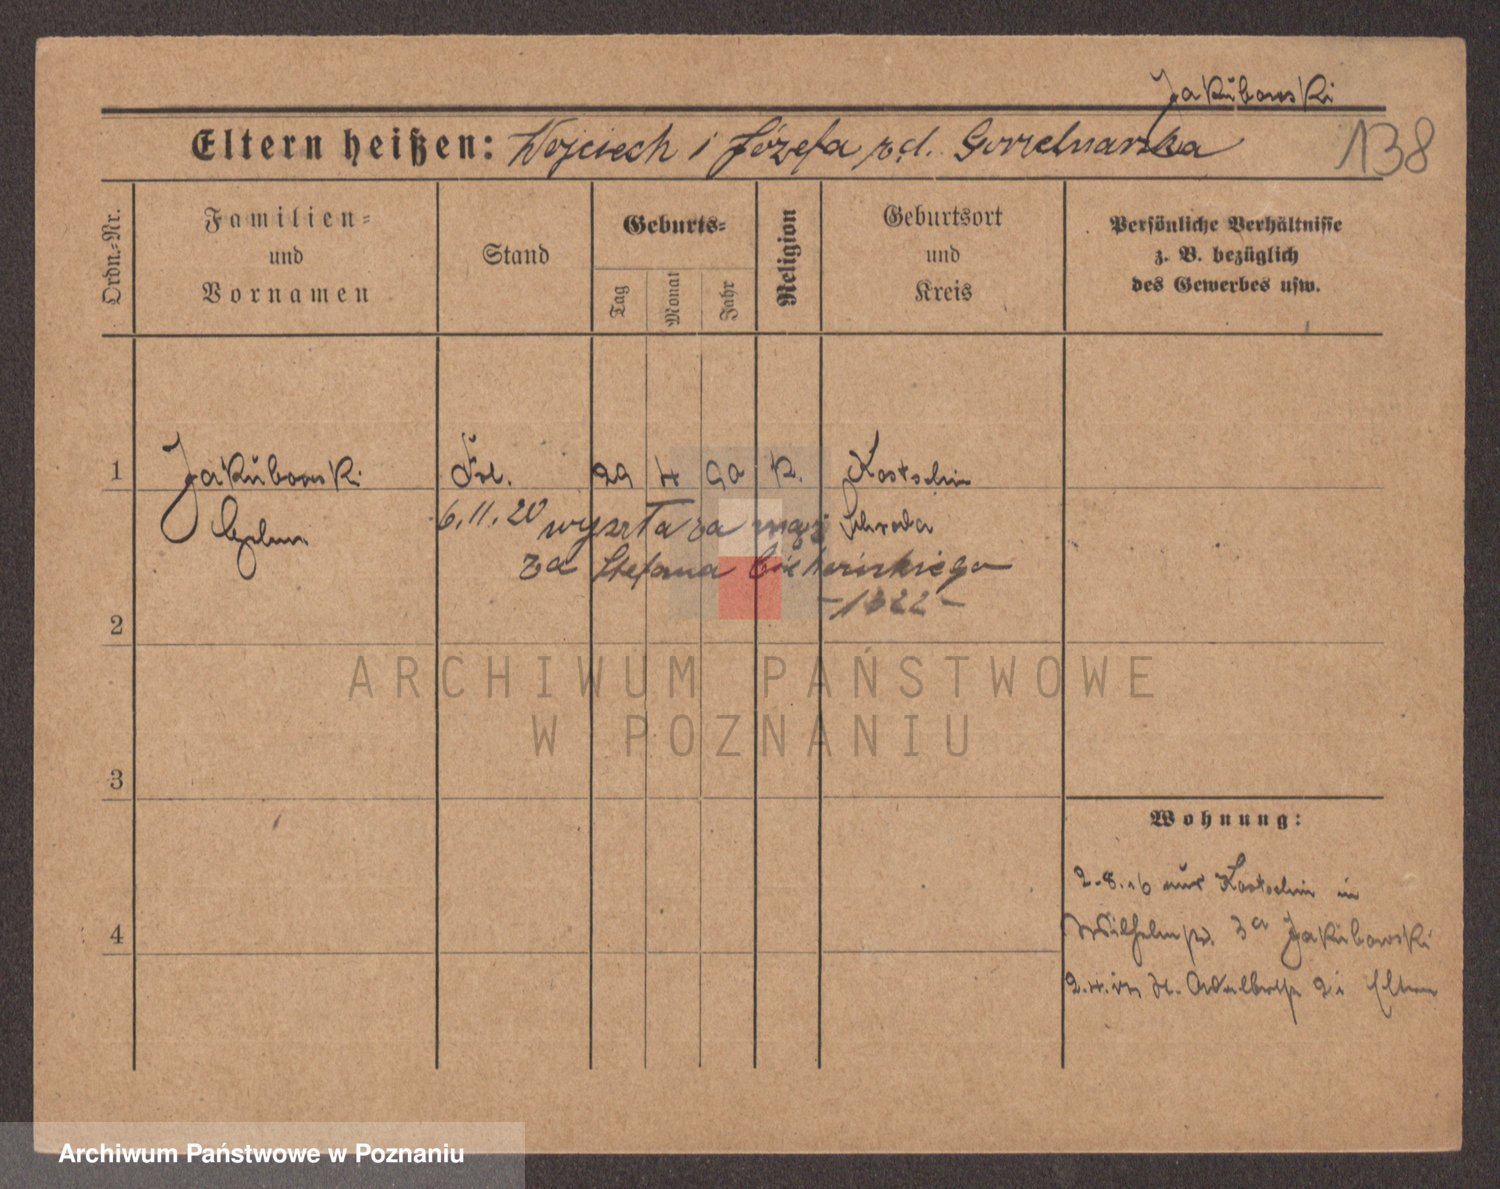 Jakubowski
Eltern heißen: Wojciech i Józefa zd. Gorzelnarska
138
Ordn.-Nr.
Familien- und Vornamen
Stand
Geburts-
Tag
Monat
Jahr
Religion
Geburtsort und Kreis
Persönliche Verhältnisse z. B. bezüglich des Gewerbes usw.
1 Jakubowski Frl. 29 4 90 k. Kostschin
6.11.20 wyszła za mąż Schroda
za Stefana
2
ARCHIWUM PAŃSTWOWE
W POZNANIU
3
Wohnung:
2.8.16 aus Kostschin in
4
Wilhelmstr. 3a Jakubowski
St. Adalbertstr. 2 i Eltern
Archiwum Państwowe w Poznaniu